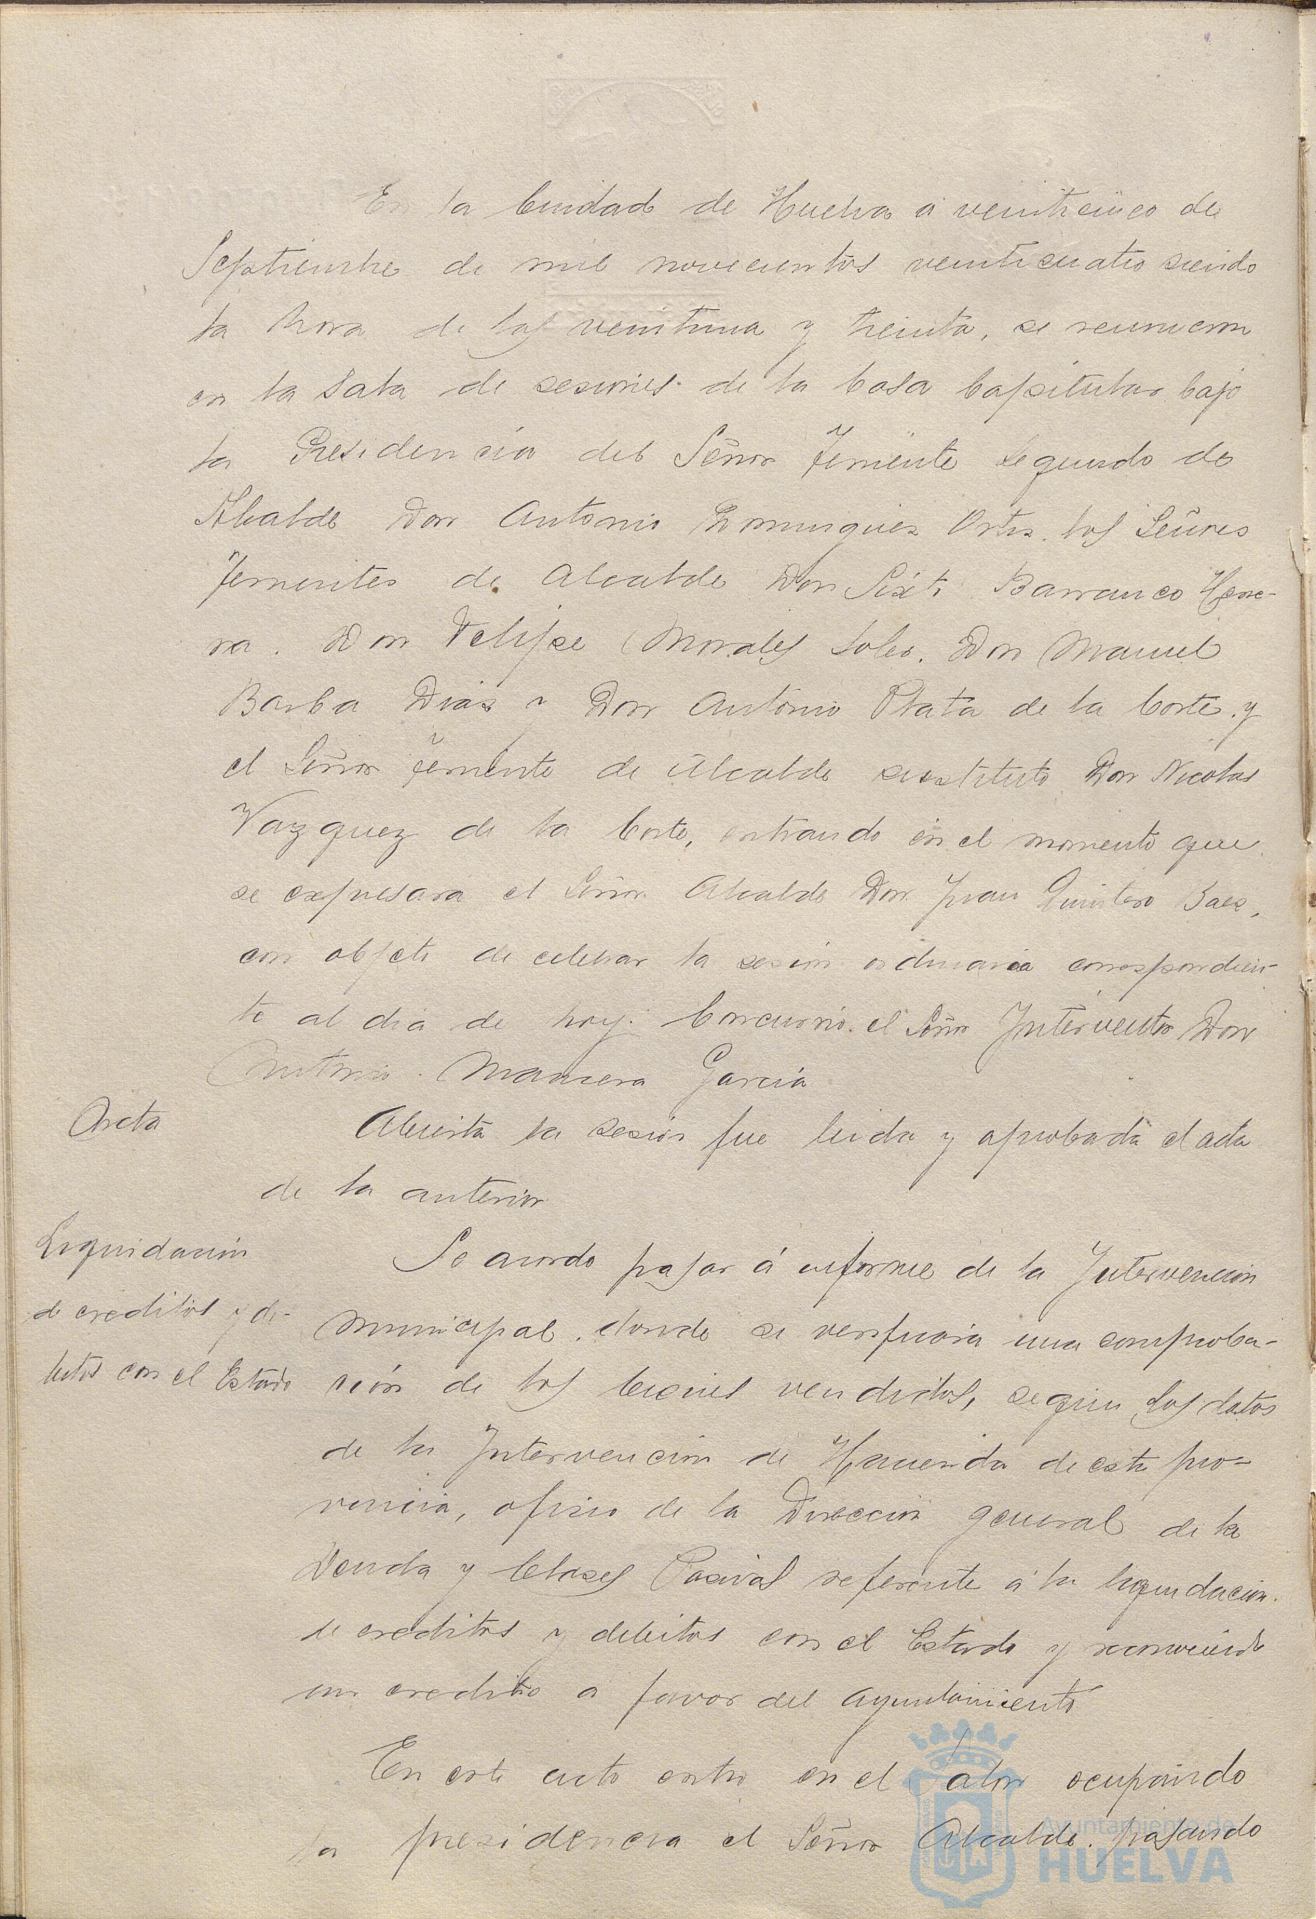 En la Ciudad de Huelva a veinticinco de
Septiembre de mil novecientos veinticuatro siendo
la hora de las veintiuna y treinta, se reunieron
en la Sala de sesiones de la Casa Capitular bajo
la Presidencia del Señor Teniente segundo de
Alcalde Don Antonio Dominguez Ortiz. los Señores
Tenientes de Alcalde Don Sixto Barranco Herre-
ra. Don Felipe Morales Soler. Don Manuel
Barba Diaz y Don Antonio Plata de la Corte. y
el Señor Teniente de Alcalde sustituto Don Nicolas
Vazquez de la Corte, entrando en el momento que
se expresara el Señor Alcalde Don Juan Quintero Baez,
con objeto de celebrar la sesión ordinaria correspondien-
te al dia de hoy. Concurrio el Señor Interventor Don
Antonio Mancera Garcia
Acta
Abierta la sesión fue leida y aprobada el acta
de la anterior
Liquidación
de creditos y de-
bitos con el Estado
Se acordo pasar á informe de la Intervencion
municipal. donde se verificara una comproba-
ción de los bienes vendidos, segun los datos
de la Intervencion de Hacienda de esta pro-
vincia, oficio de la Dirección general de la
Deuda y Clases Pasivas referente á la liquidacion
de creditos y debitos con el Estado y reconociendo
un credito a favor del Ayuntamiento
En este acto entro en el Salon ocupando
la presidencia el Señor Alcalde. pasando
Ayuntamiento de
HUELVA